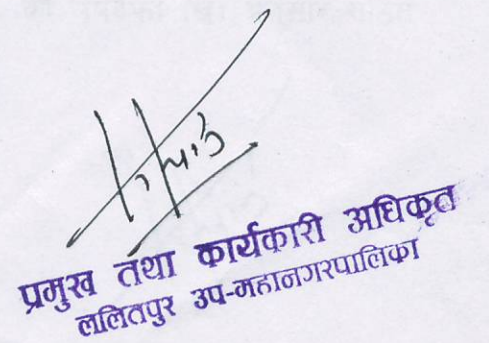 प्रमुख तथा कार्यकारी अधिकृत
ललितपुर उप-महानगरपालिका